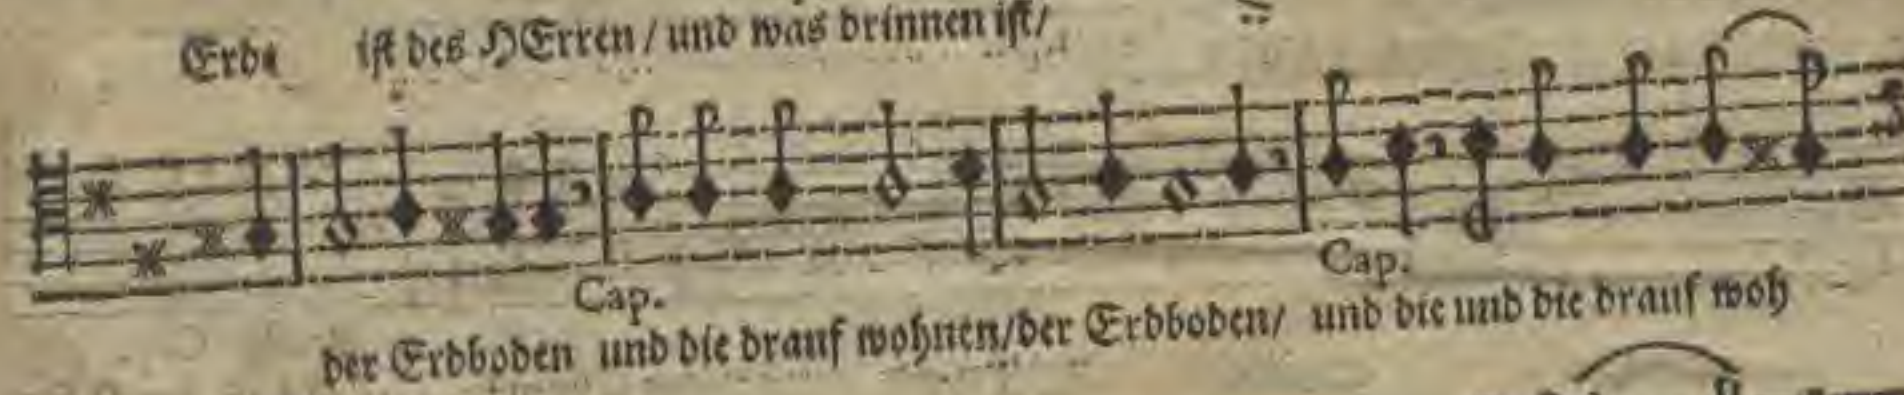 Erde ist des HErren / und was drinnen ist /
Cap. Cap.
der Erdboden und die drauf wohnen / der Erdboden / und die und die drauf woh